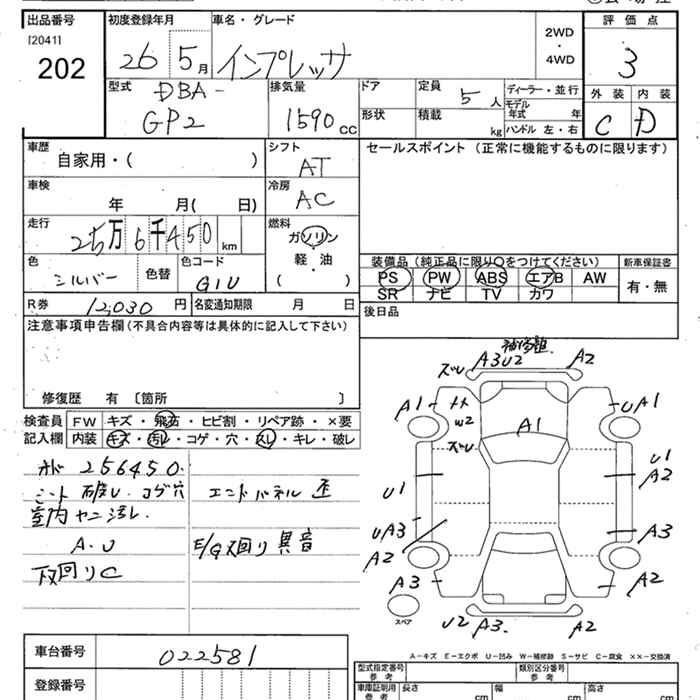 出品番号 初度登録年月 車名・グレード 2WD・4WD 評価点
[2041]
202 26 5月 インプレッサ 3
外装 内装
C D
型式 排気量 ドア 定員 ディーラー・並行
DBA- 5人 モデル年式 年
GP2 1590cc 形状 積載 kg ハンドル 左・右
車歴 シフト セールスポイント (正常に機能するものに限ります)
自家用・( ) AT
車検 冷房
年 月( 日) AC
走行 燃料
25万6千450km ガソリン
軽・油
( )
色 色コード 装備品 (純正品に限り○をつけてください) 新車保証書
シルバー 色替 G1U PS PW ABS エアB AW 有・無
SR ナビ TV カワ
R券 12,030円 名変通知期限 月 日 後日品
注意事項申告欄 (不具合内容等は具体的に記入して下さい)
修復歴 有 〔箇所 〕
検査員 FW キズ・飛石・ヒビ割・リペア跡・×要
記入欄 内装 キズ・汚レ・コゲ・穴・スレ・キレ・破レ
オド 256450.
シート 破レ.コゲ穴 エンドパネル 歪
室内ヤニ汚レ.
A.U E/G 異音
下回りC
ズレ A3U2 A2
A1 W2 A1 UA1
ズレ
U1 U1
A2
UA3 A3
A2
A3 A2
スペア U2 A3. A2
A-キズ E-エクボ U-凹み W-補修跡 S-サビ C-腐食 ××-交換済
車台番号 022581
登録番号
型式指定番号 参考 類別区分番号 参考
車庫証明用 参考 長さ cm 幅 cm 高さ cm